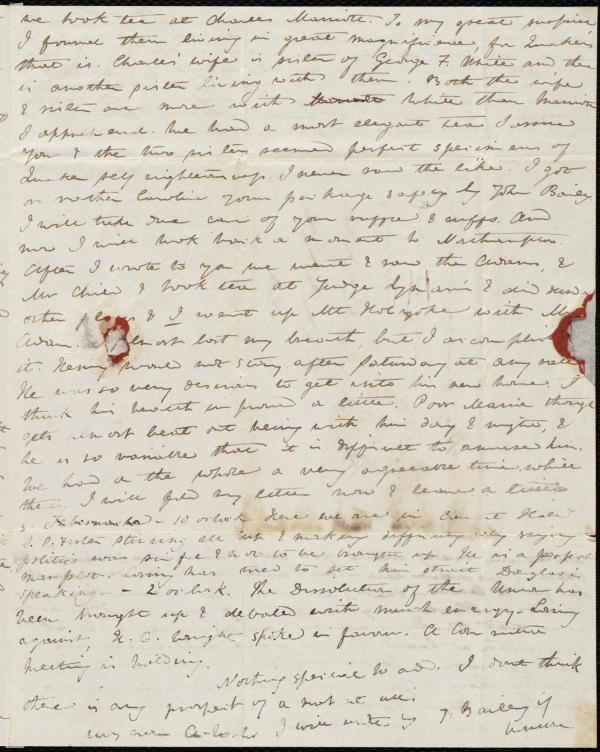 we took tea at Charles Marriott. To my great surprise
I found them living in great magnificence, for Quakers
that is. Charles' wife is sister of George F. White and there
is another sister living with them. Both the wife
& sister are more with White than Marriott
I apprehend. We had a most elegant tea I assure
you & the two sisters seemed perfect specimens of
Quaker self righteousness. I never saw the like. I got
or rather Caroline your package safely by John Bailey
I will take due care of your ruffle & cuffs. And
now I will look back a moment to Northampton.
After I wrote to you we went & saw the Adams, &
Mr Child & took tea at Judge Lyman's & did
other & I went up Mt Holyoke with Mr
Adam. I almost lost my breath, but I accomplished
it. Henry would not stay after Saturday at any rate
He was so very desirous to get into his new house. I
think his health improved a little. Poor Maria though
gets almost beat out being with him day & night, &
he is so variable that it is difficult to amuse him.
We had on the whole a very agreeable time while
there. I will fold my letter now & leave a little
10 o'clock. Here we are in Hall
Foster stirring all up & making difficulty by saying
politics was sinful & not to be brought up. He is a perfect
marplot. Loring has tried to set him strait. Douglass is
speaking - 2 o'clock. The Dissolution of the Union has
been brought up & debated with much energy. Loring
against, H. C. Wright spoke in favour. A Committee
meeting is holding.
Nothing special to add. I dont think
there is any prospect of a mob at all.
my own I will write by J. Bailey if